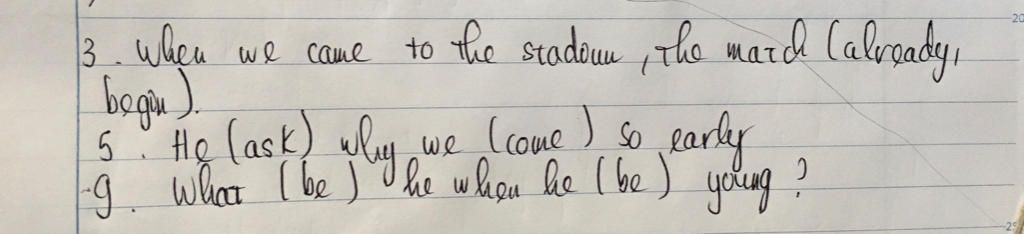 3. When we came to the stadoun, the match (already,
begin).
5. He (ask) why we (come) so early
9. What (be) he when he (be) young?
20
25